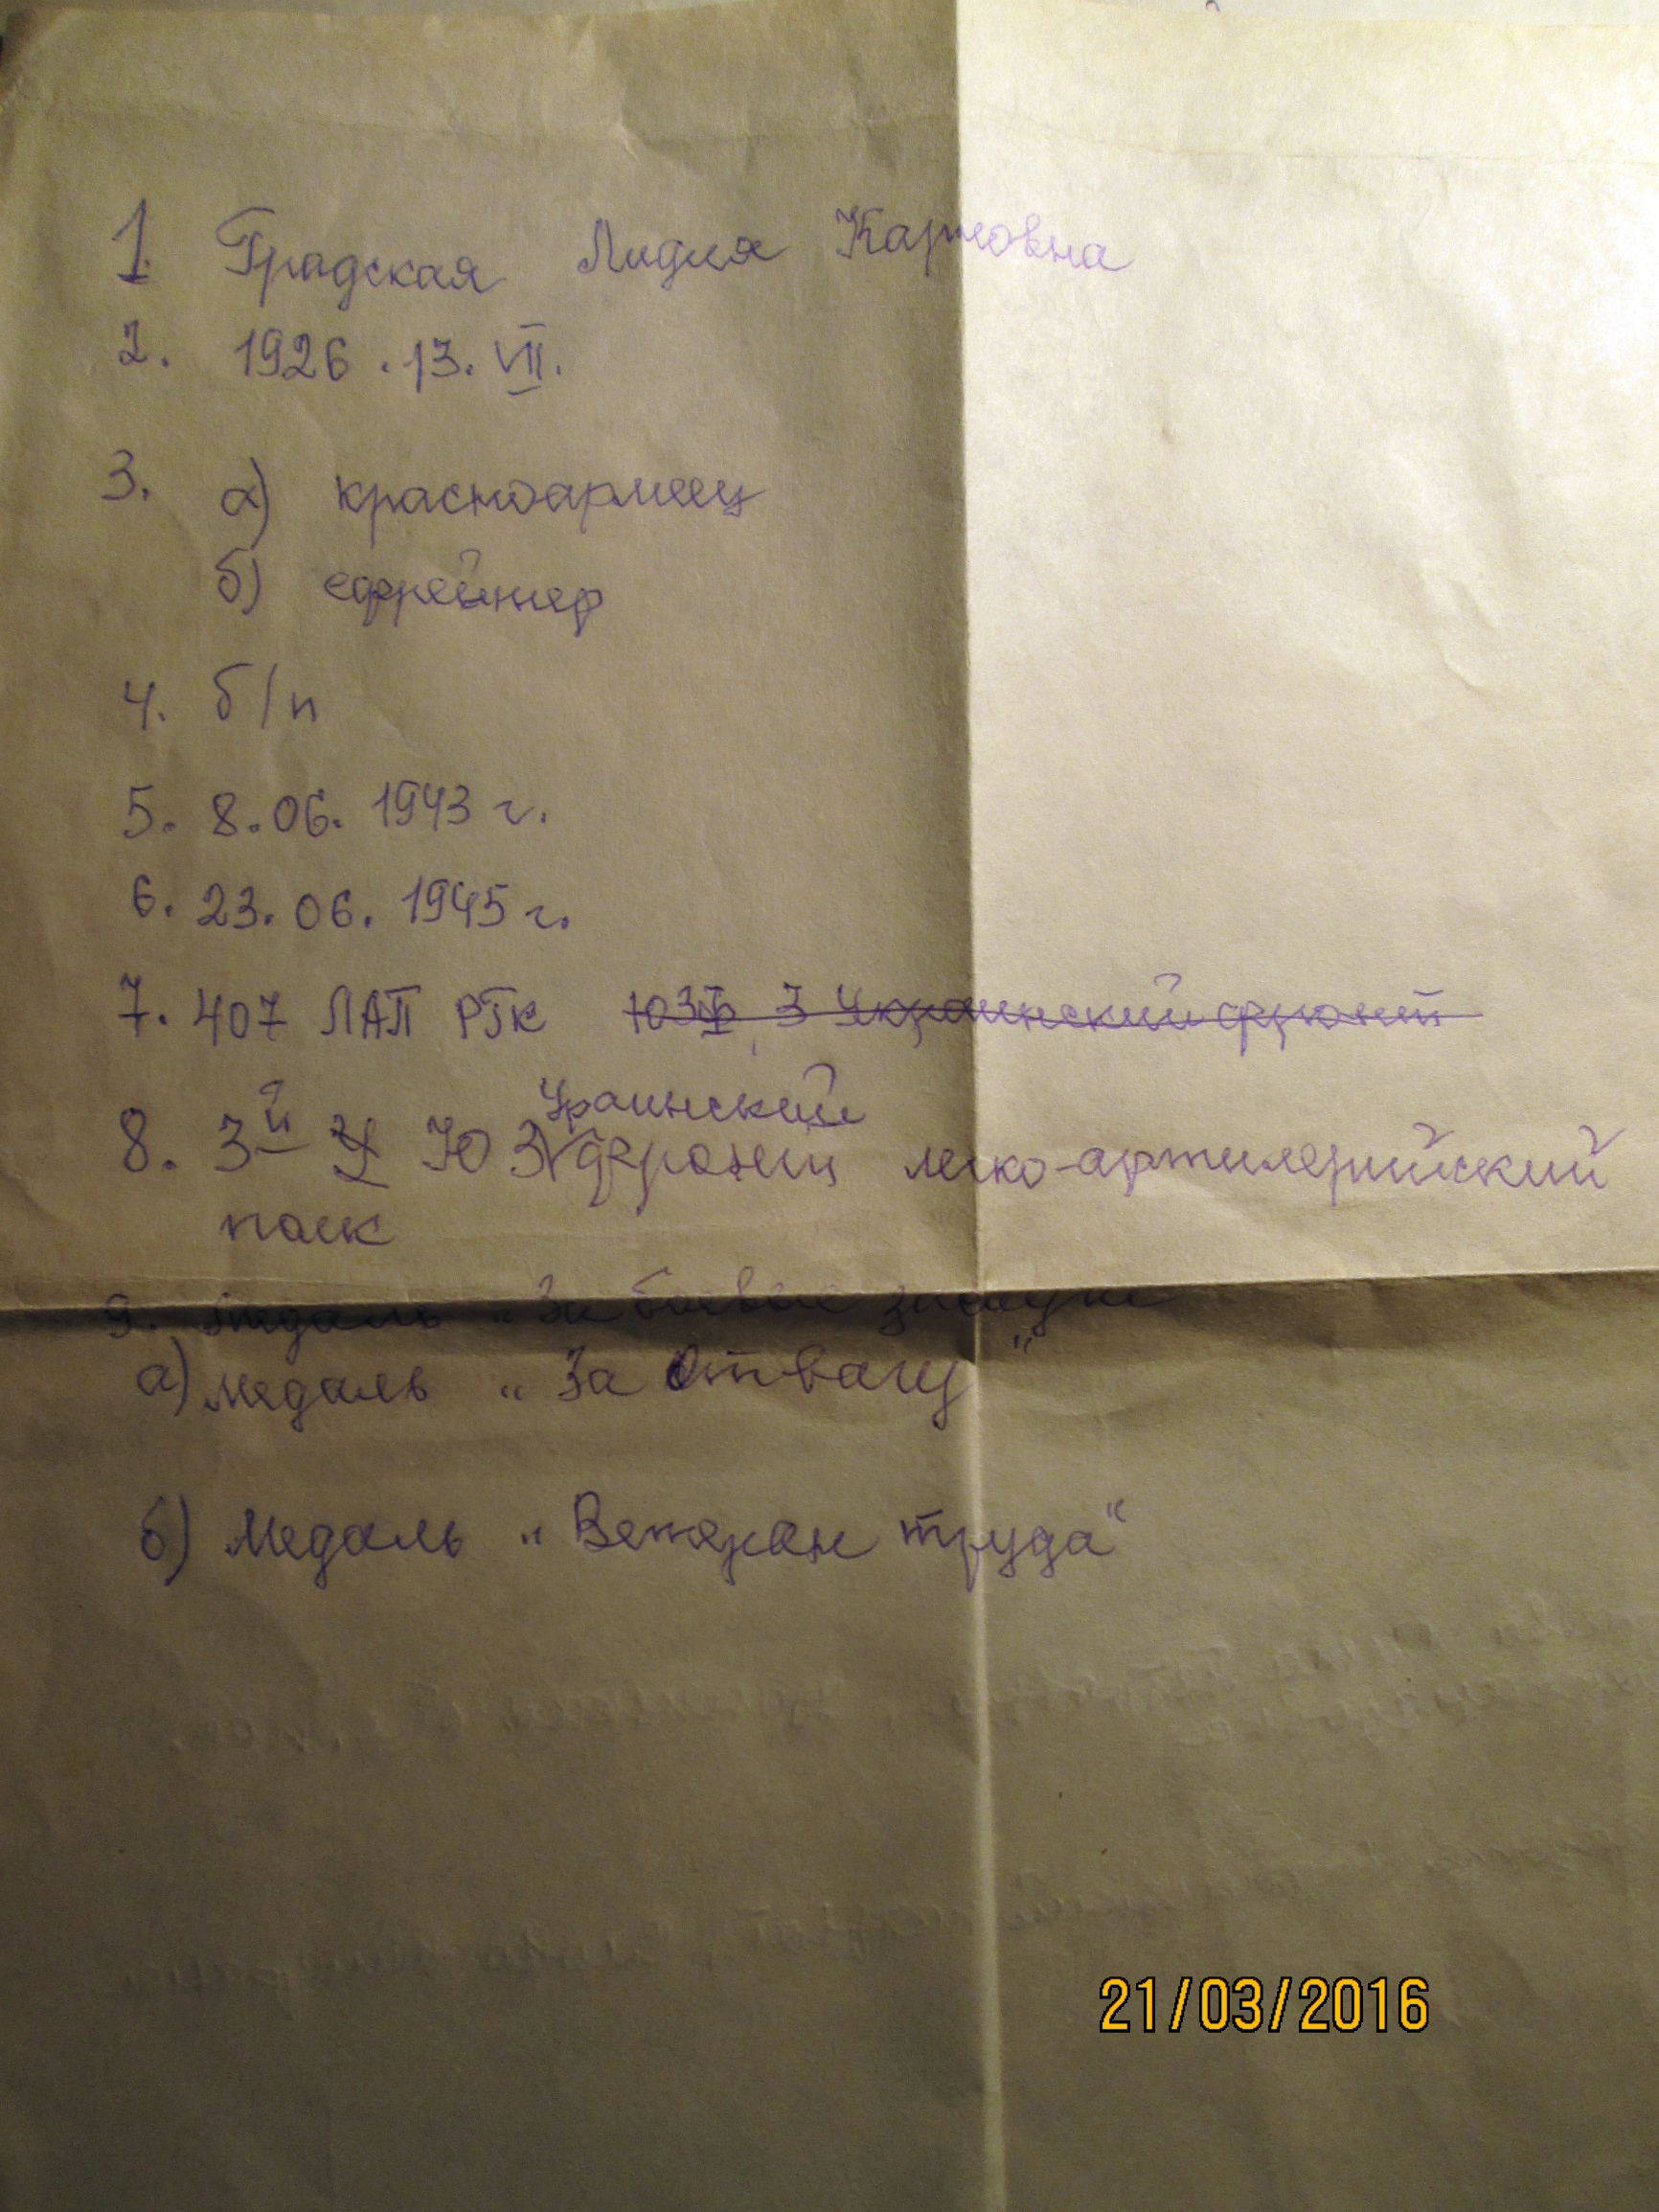 1. Градская Лидия Карповна
2. 1926.13.VII.
3. а) красноармеец
б) ефрейтер
4. б/п
5. 8.06.1943 г.
6. 23.06.1945 г.
7. 407 ЛАП РГК ЮЗФ, 3 Украинский фронт
8. 3й У ЮЗ Украинский фронт легко-артилерийский
полк
9. Медаль "За боевые заслуги
а) медаль "За Отвагу"
б) Медаль "Ветеран труда"
21/03/2016